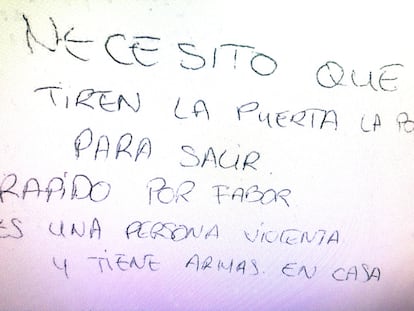 NECESITO QUE
TIREN LA PUERTA LA PO
PARA SALIR.
RAPIDO POR FABOR
ES UNA PERSONA VIOLENTA
Y TIENE ARMAS. EN CASA